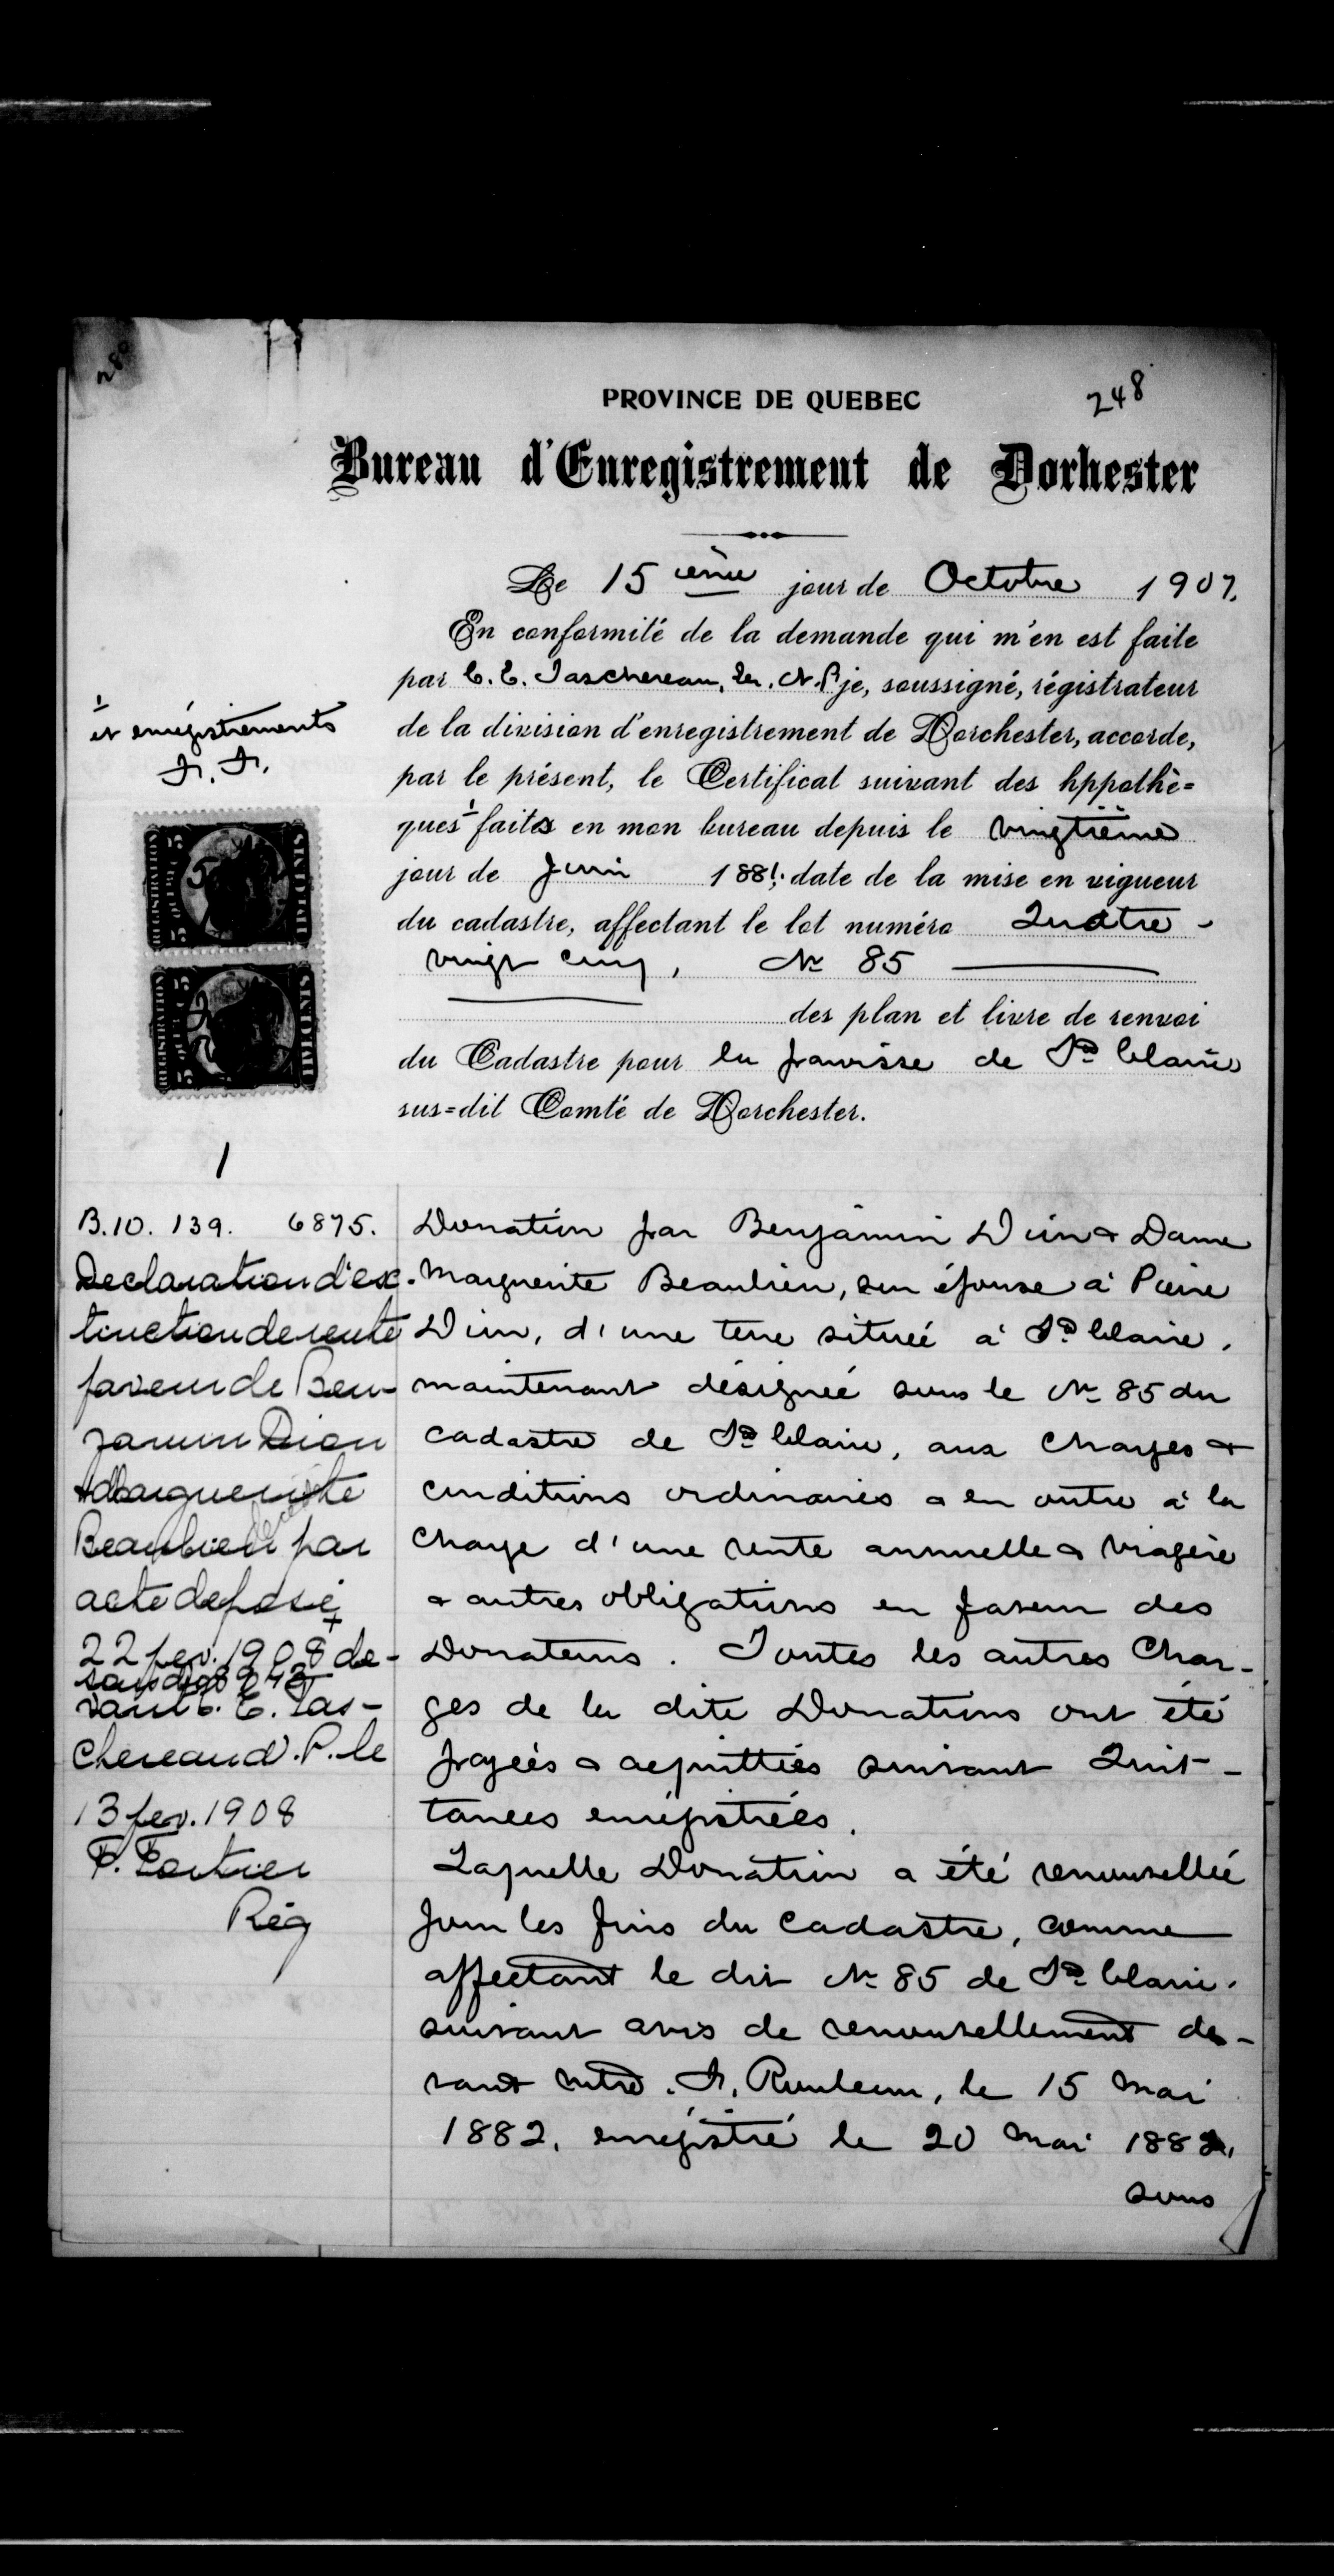 280
248
PROVINCE DE QUEBEC
Bureau d'Enregistrement de Dorhester
Le 15 ième jour de Octobre 1907.
En conformité de la demande qui m'en est faite
par C. E. Taschereau, Er. N.P. je, soussigné, régistrateur
de la division d'enregistrement de Dorchester, accorde,
par le présent, le Certificat suivant des hppothè=
ques faites en mon bureau depuis le vingtième
jour de Juin 1881; date de la mise en vigueur
du cadastre, affectant le lot numéro Quatre-
vingt cinq, No 85
des plan et livre de renvoi
du Cadastre pour la paroisse de Ste Claire
sus=dit Comté de Dorchester.
et enregistrements
1
B.10. 139. 6875.
Declaration d'ex-
tinction de rente
faveur de Ben-
jamin Dion
& Marguerite
Beaulieu par
acte deposé
22 fev. 1908 de-
sous
vant C. E. Tas-
chereau N.P. le
13 fev. 1908
F. Fortier
Rég
Donation par Benjamin Dion & Dame
Marguerite Beaulieu, son épouse à Pierre
Dion, d'une terre située à Ste Claire,
maintenant désignée sous le No 85 du
cadastre de Ste Claire, aux charges &
conditions ordinaires & en outre à la
charge d'une rente annuelle & viagère
& autres obligations en faveur des
Donateurs. Toutes les autres Char-
ges de la dite Donations ont été
payées & acquittées suivant Quit-
tances enrégistrées.
Laquelle Donation a été renouvellée
pour les fins du cadastre, comme
affectant le dit No 85 de Ste Claire,
suivant avis de renouvellement de-
vant Mtre. F. Rouleau, le 15 Mai
1882, enrégistré le 20 Mai 1882,
sous